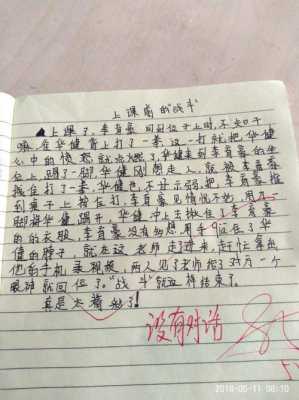 上课前的"战斗"
上课了,李育豪回到位子上时,不知干
嘛,在华健背上打了一拳,这一打就把华健
心中的愤怒就点燃了,华健来到李育豪的坐
位上,踢了一脚华健刚闻走人,就被李育豪
拽住打了一拳,华健也不甘示弱,把李育豪推
到桌子上按住打,李育豪见情况不妙,用一
脚将华健踢开,华健冲上去揪住了李育豪
的的衣服,李育豪没有多想,用手掐在了华
健的脖子,就在这老师走了进来,赶忙拿出
他的手机录视频,两人见了老师给了对方一个
眼神就回位了"战斗"就这样结束了。
真是太精彩了!
没有对话
2018-05-11 08:10